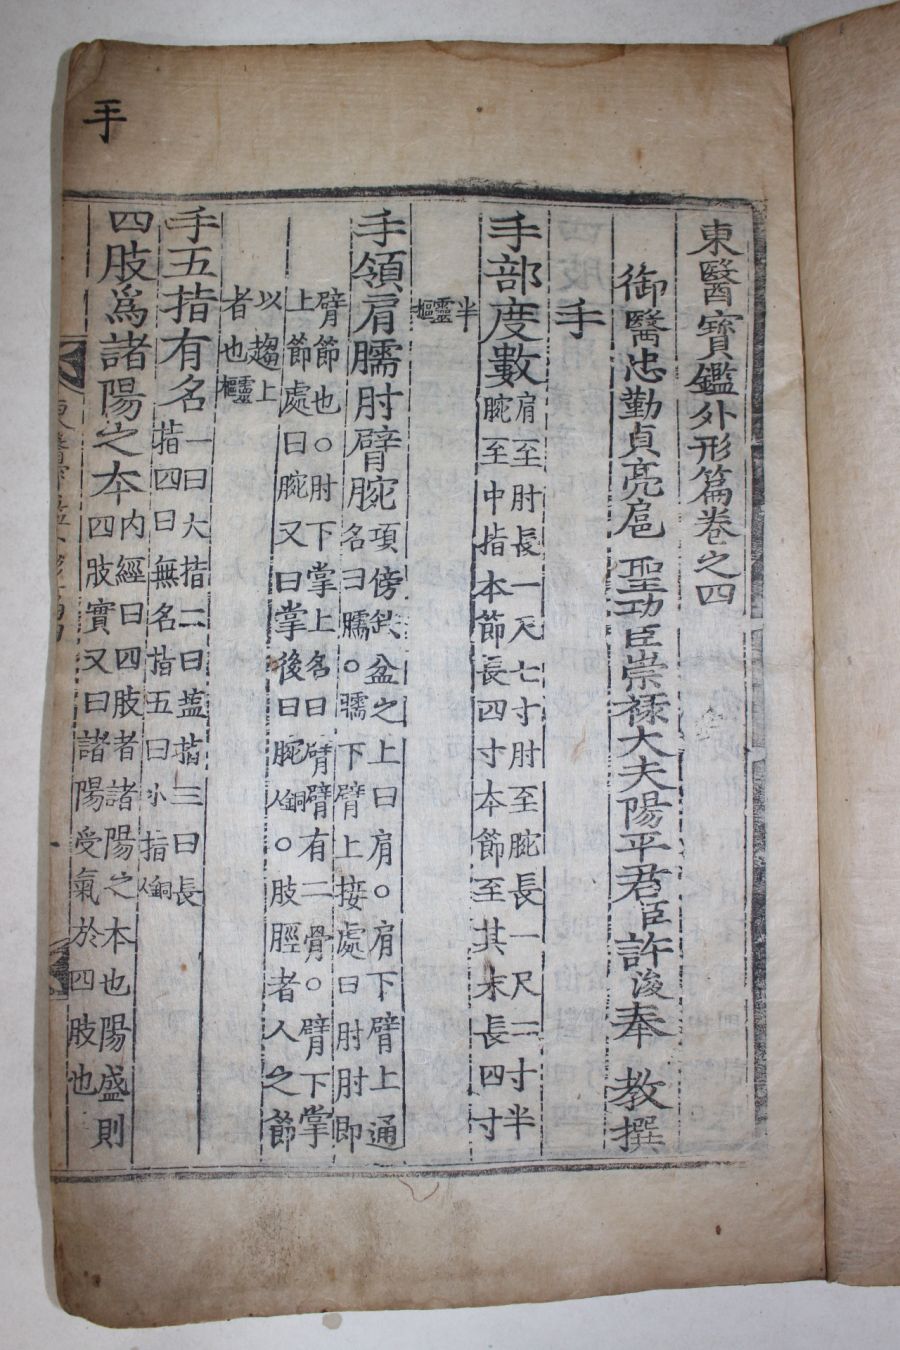 手
東醫寶鑑外形篇卷之四
御醫忠勤貞亮扈 聖功臣崇祿大夫陽平君臣許浚奉 敎撰
手
手部度數肩至肘長一尺七寸肘至腕長一尺二寸半
腕至中指本節長四寸本節至其末長四寸
半靈樞
手領肩臑肘臂腕項傍缺盆之上曰肩○肩下臂上通
名曰臑○臑下臂上接處曰肘肘即
臂節也○肘下掌上名曰臂臂有二骨○臂下掌
上節處曰腕又曰掌後曰腕銅人○肢脛者人之節
以趨上
者也靈樞
手五指有名一曰大指二曰盐指三曰長
指四曰無名指五曰小指銅人
四肢爲諸陽之本內經曰四肢者諸陽之本也陽盛則
四肢實又曰諸陽受氣於四肢也